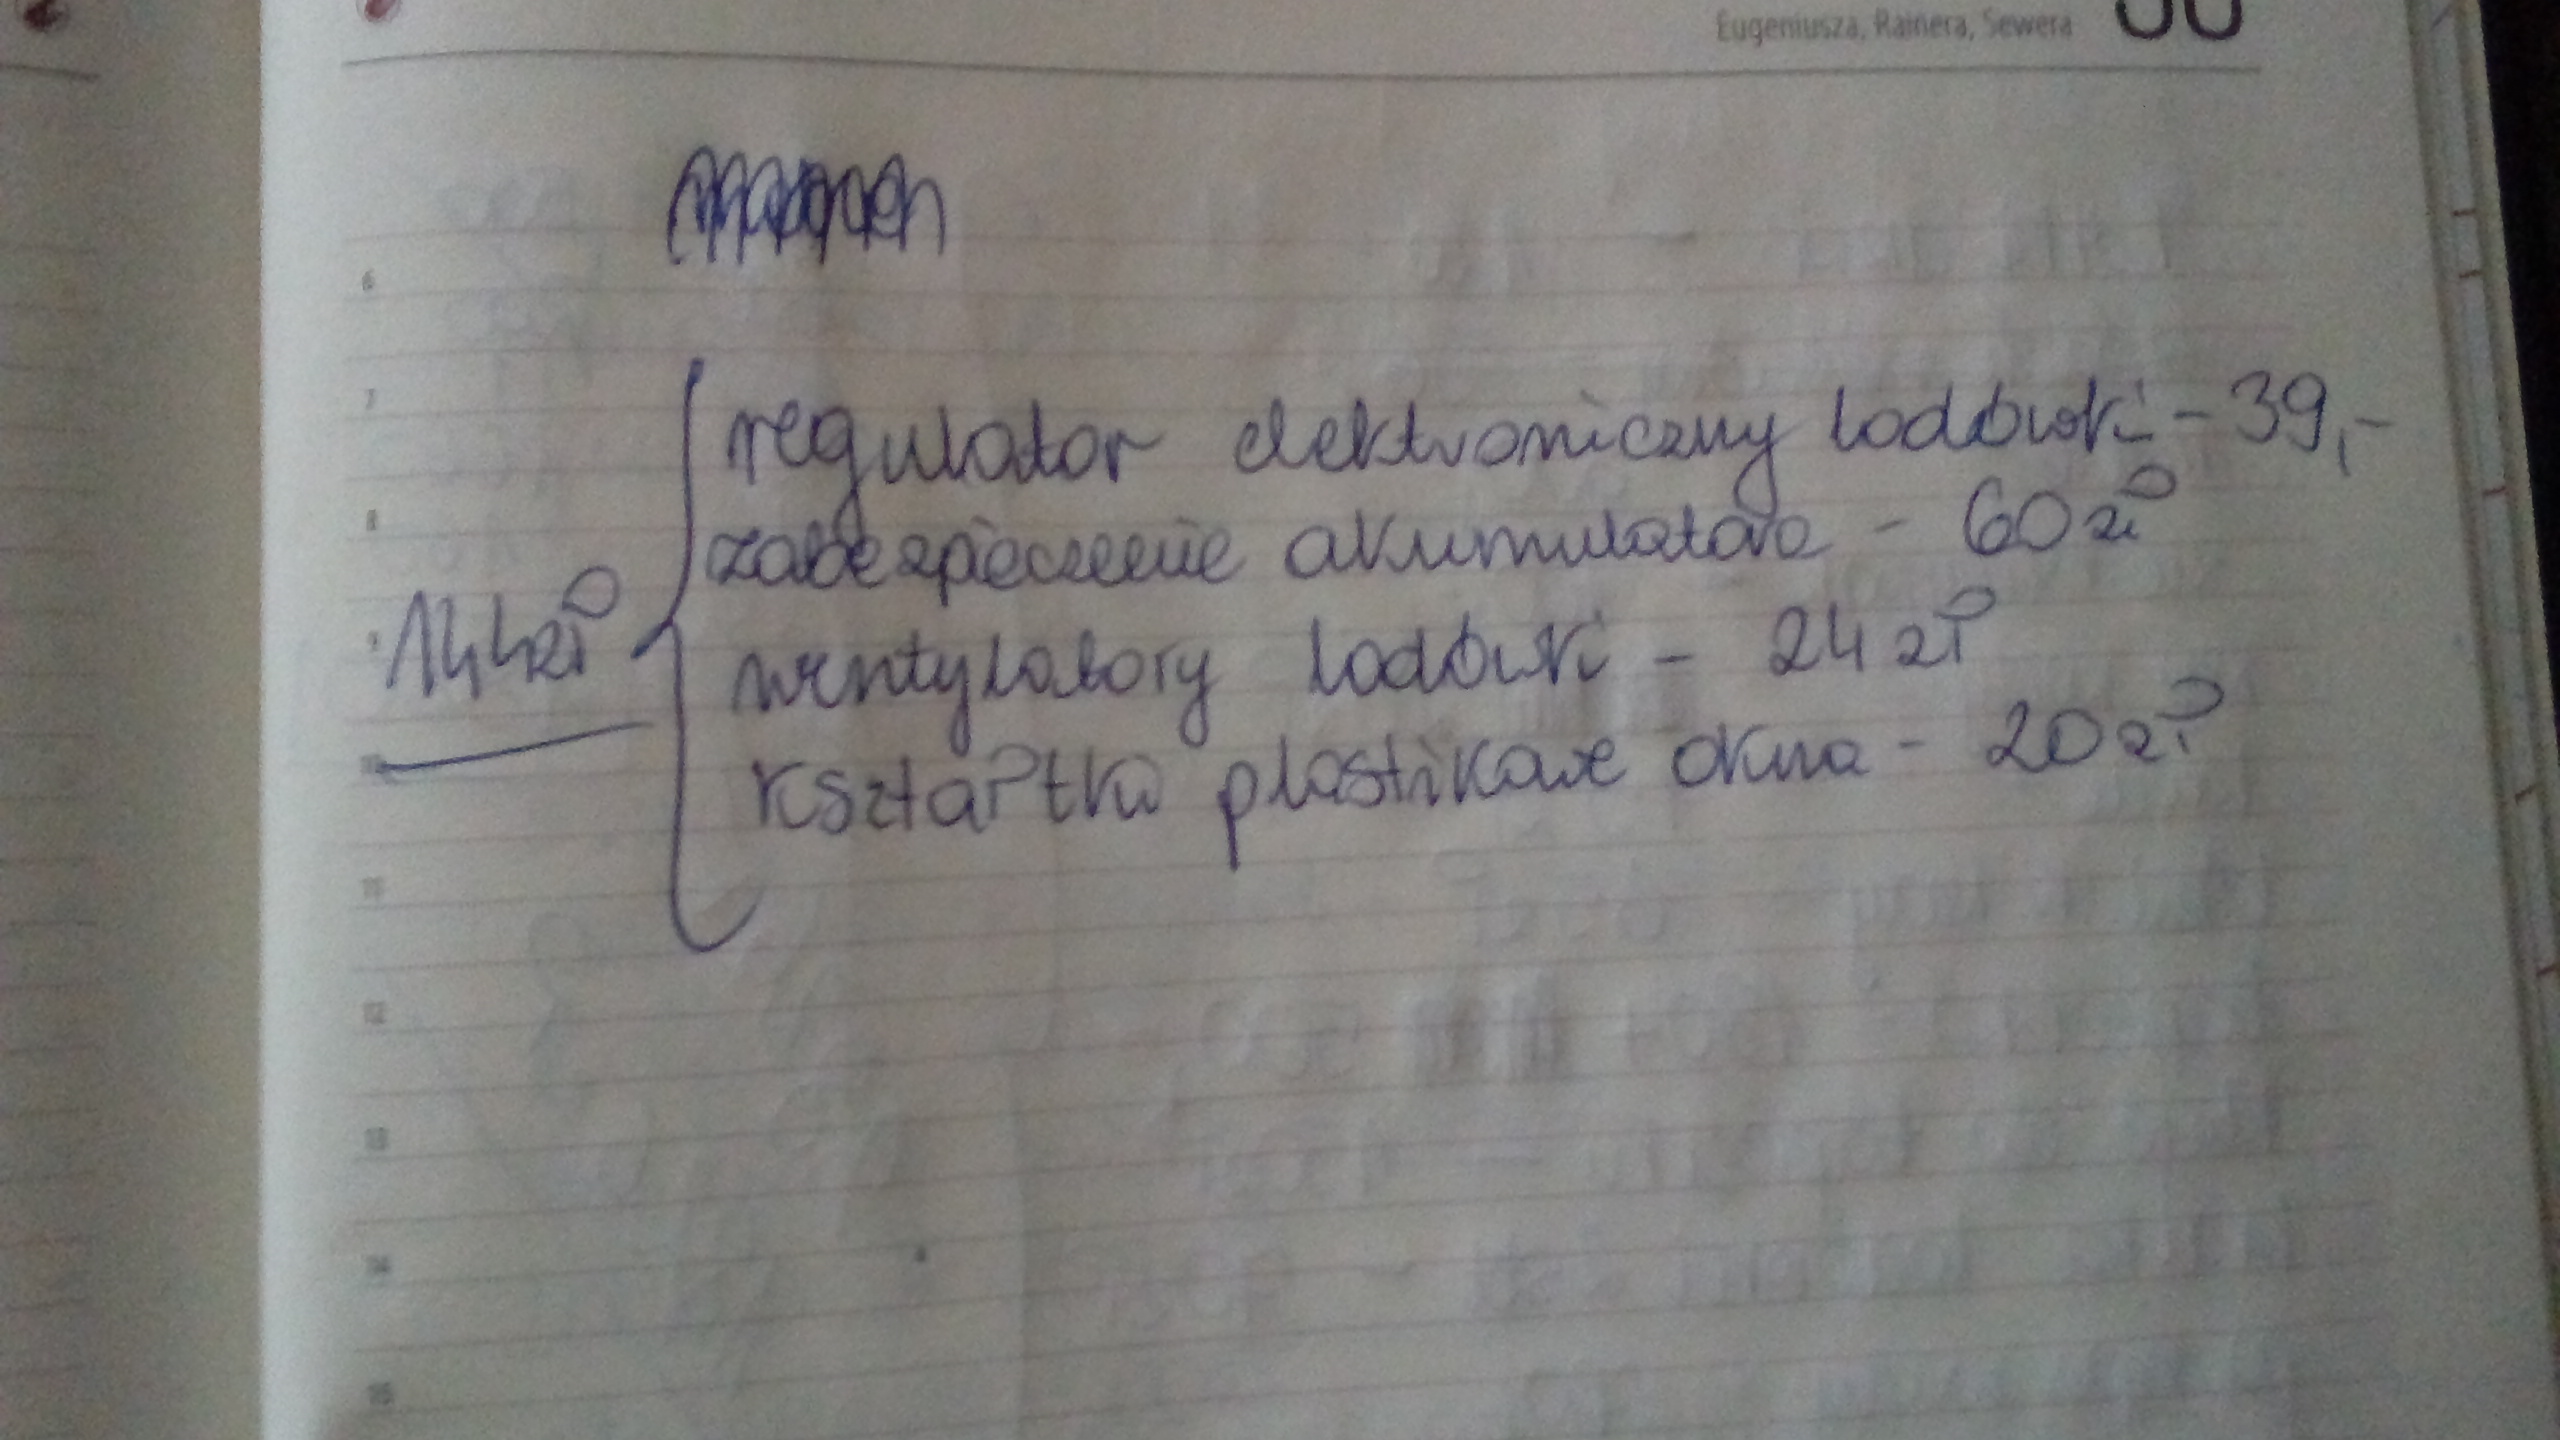 Eugeniusza, Rainera, Sewera
regulator elektroniczny lodówki - 39,-
zabezpieczenie akumulatora - 60 zł
144 zł
wentylatory lodówki - 24 zł
kształtki plastikowe okna - 20 zł
6
7
8
9
10
11
12
13
14
15